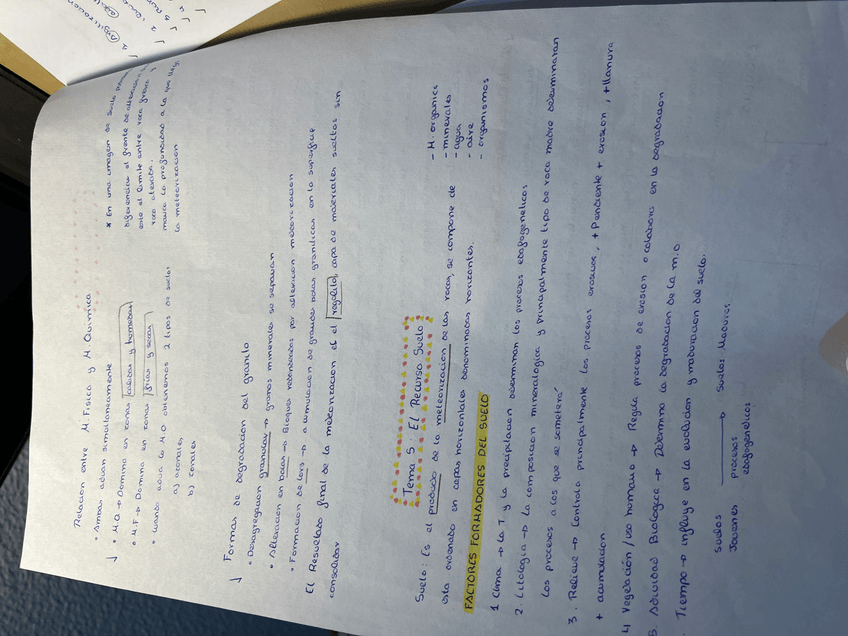 Relacion entre M. Fisica y M. Quimica
• Ambas actuan simultaneamente
• M.Q → Domina en zonas calidas y humedas
• M.F → Domina en zonas frias y secas
• cuando actua la M.O obtenemos 2 tipos de suelos
a) azonales
b) zonales
* En una imagen de suelo
diferenciar el frente de alteracion
este el limite entre roca fresca y
roca alterada.
marca la profundidad a la que llega
la meteorizacion
Formas de degradacion del granito
• Desagregacion granular → granos minerales se separan
• Alteracion en bolas → Bloques redondeados por alteracion meteorizacion
• Formacion de tors → acumulacion de grandes bolas graniticas en la superficie
El Resultado final de la meteorizacion es el regolito, capa de materiales sueltos sin
consolidar
Tema 5: El Recurso Suelo
Suelo: Es el producto de la meteorización de las rocas, se compone de
- M. organica
- minerales
- agua
- aire
- organismos
esta ordenado en capas horizontales denominadas horizontes.
FACTORES FORMADORES DEL SUELO
1 Clima → La T. y la precipitacion determinan los procesos edafogeneticos
2. Litologia → La composicion mineralogica y principalmente tipo de roca madre determinaran
los procesos a los que se someterá
3. Relieve → Controla principalmente los procesos erosivos, + Pendiente + erosion, + llanura
+ acumulacion
4 Vegetación / uso humano → Regula procesos de erosion o colabora en la degradacion
5. Actividad Biologica → Determina la degradacion de la m.o
Tiempo → influye en la evolucion y maduracion del suelo.
suelos Jovenes → suelos Maduros
procesos
edafogeneticos